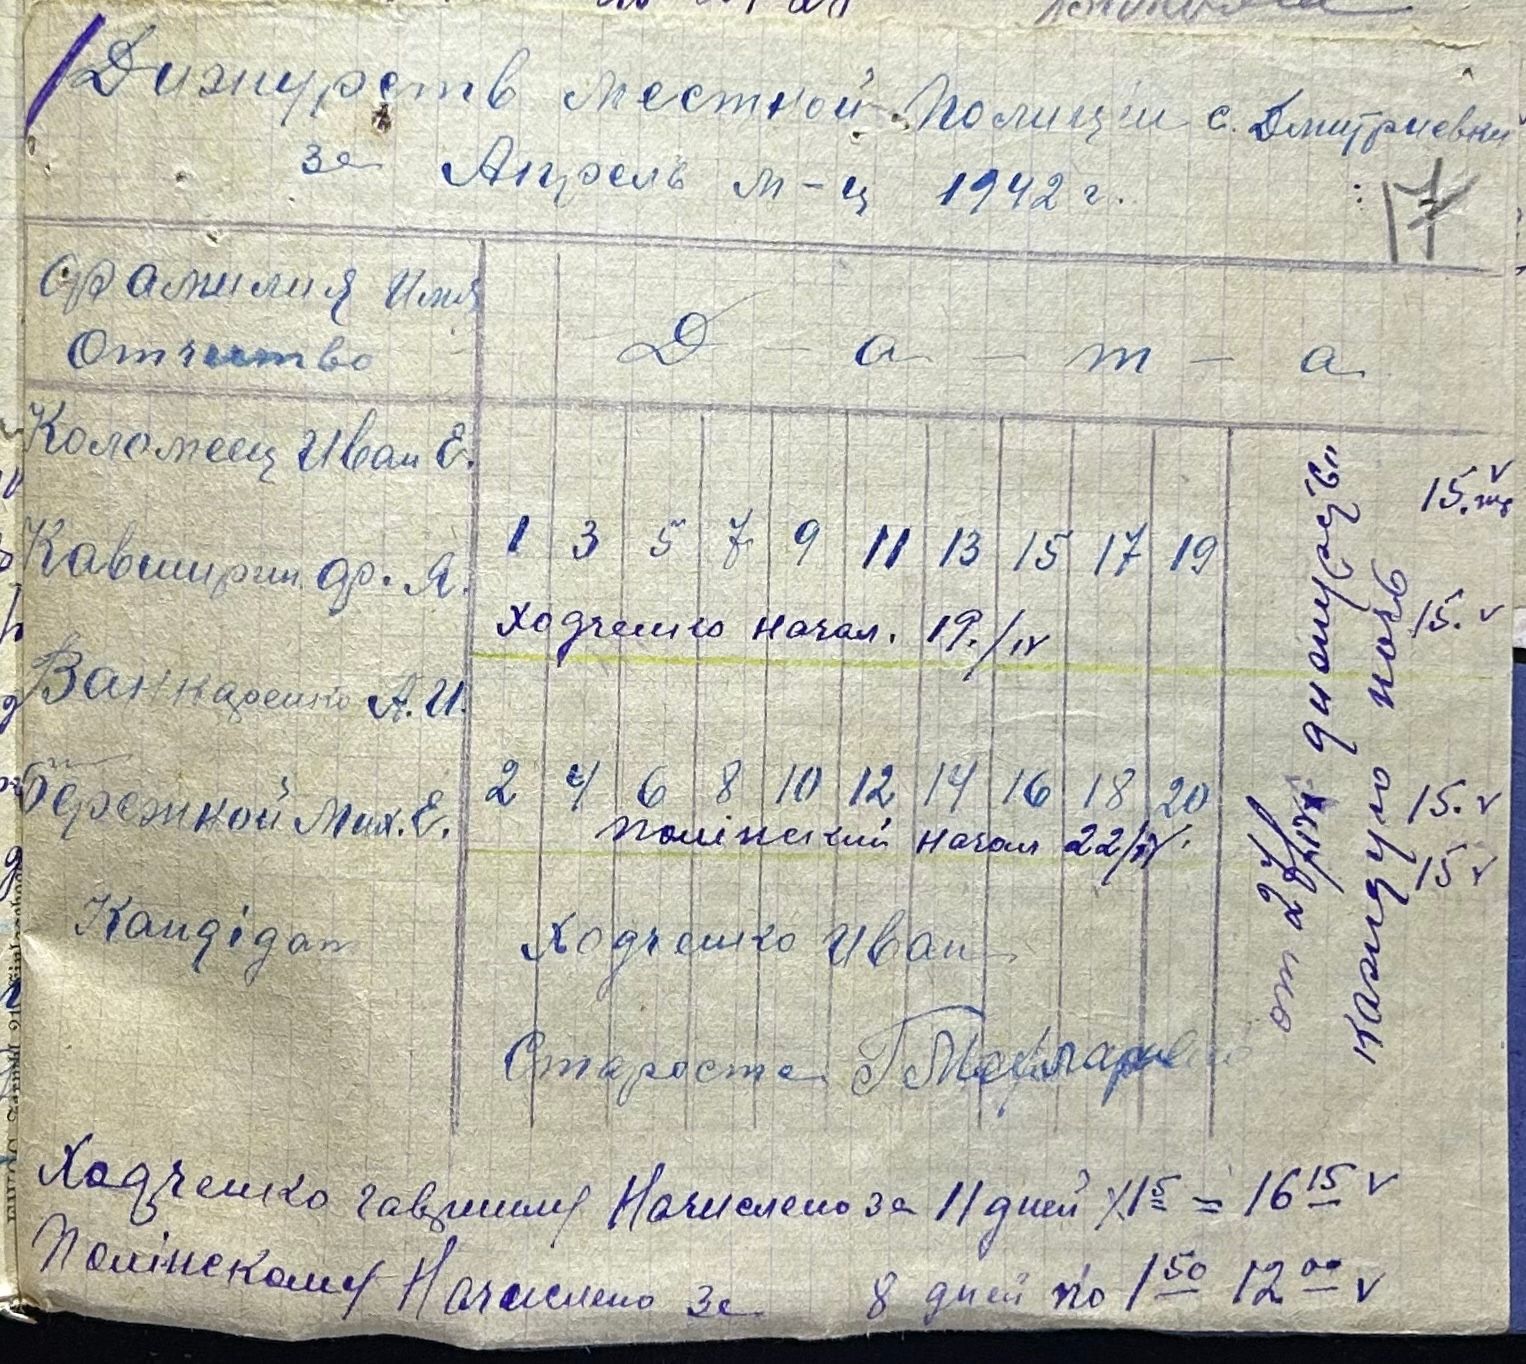 Дижурств местной Полиции с. Дмитриевки
за Апрель м-ц 1942 г.
17
Фамилия Имя
Отчество
Д - а - т - а
Коломеец Иван Е.
15.
1 3 5 7 9 11 13 15 17 19
Кавширин Ф. Я.
15. v
Ходченко начал. 19./IV
А. И.
2 4 6 8 10 12 14 16 18 20
Бережной Мих. Е.
15. v
Полінский начал 22/IV.
15 v
Кандідат Ходченко Иван
Староста
от 27/IV дижурсц
каждую ночь
Ходченко Начислено за 11 дней х 1 15 = 16 15 v
Полінскому Начислено за 8 дней по 1 50 12 00 v